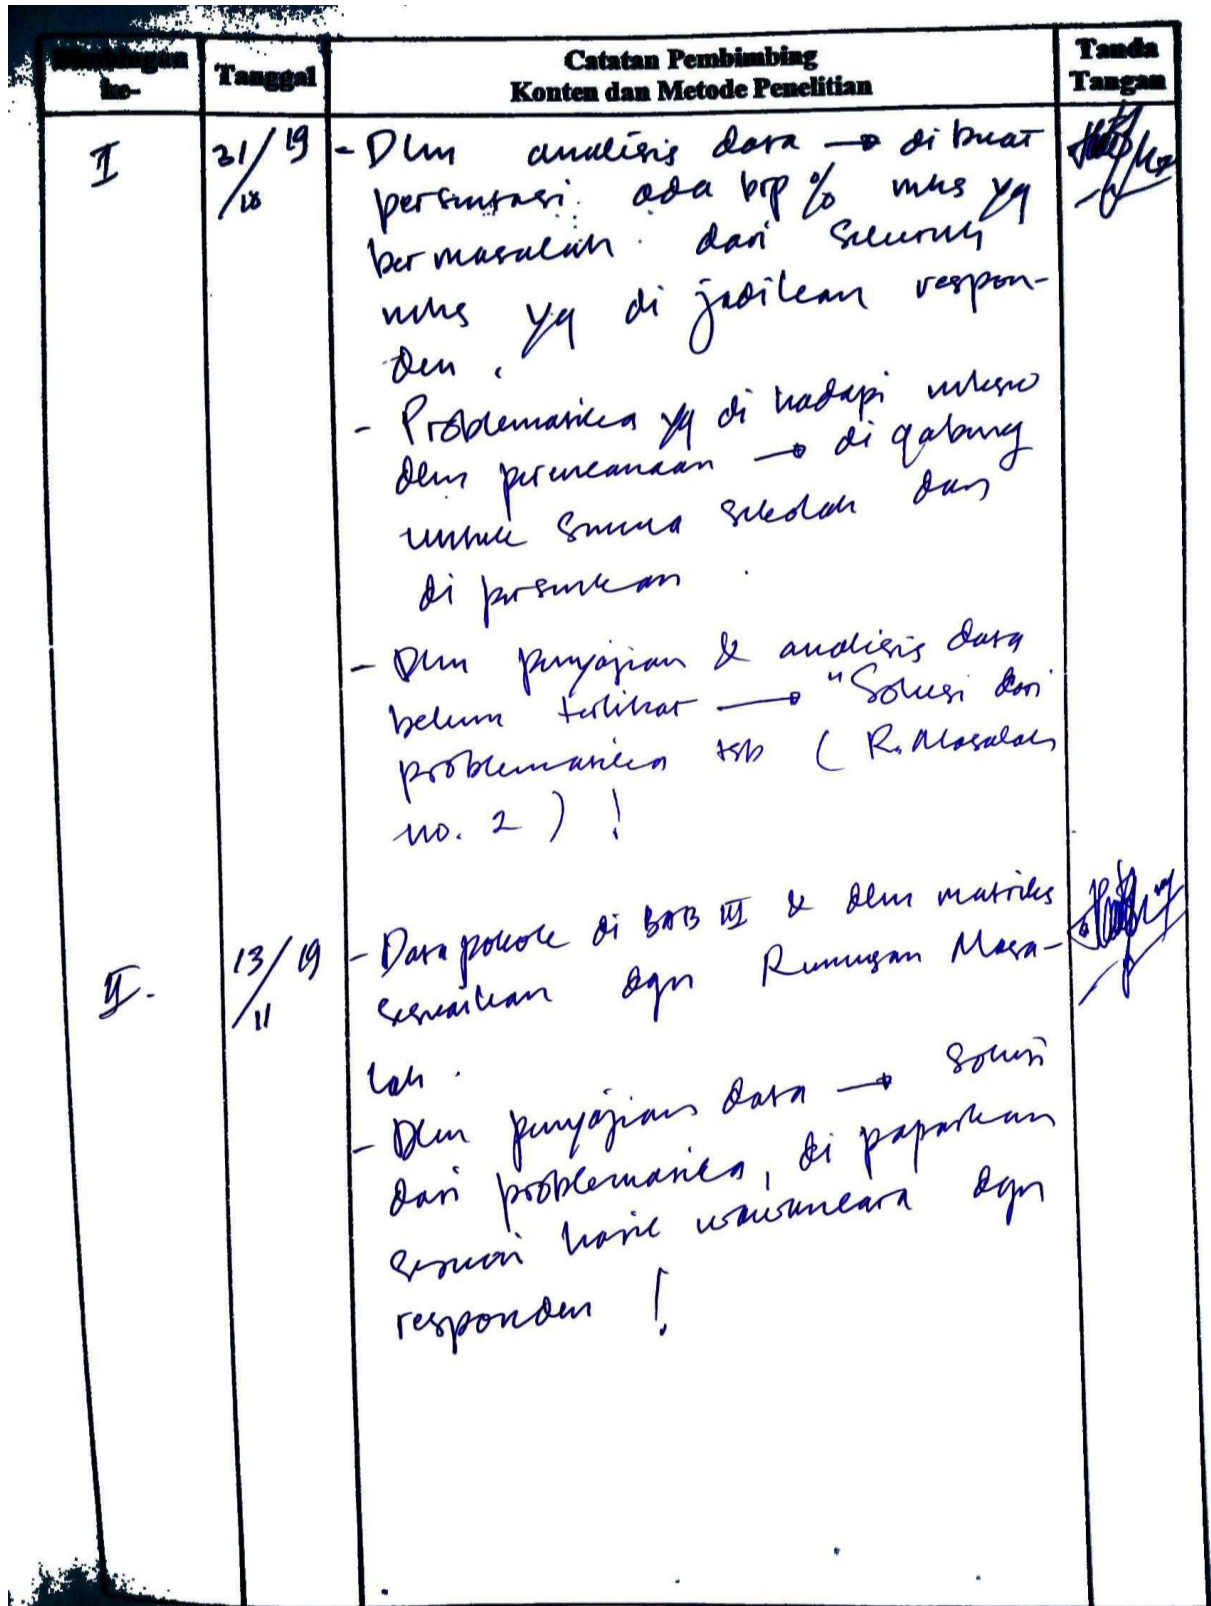 Bimbingan ke-
Tanggal
Catatan Pembimbing
Konten dan Metode Penelitian
Tanda Tangan
I
31/19
/10
- Dlm analisis data → di buat
persentasi. ada brp % mhs yg
bermasalah. dari seluruh
mhs yg di jadikan respon-
den.
- Problematika yg di hadapi mhsw
dlm perencanaan → di gabung
untuk semua sekolah dan
di persenkan
- Dlm penyajian & analisis data
belum terlihat → "Solusi dari
problematika tsb ( R. Masalah
no. 2 ) !
II.
13/19
/11
- Data pokok di BAB III & dlm matriks
sesuaikan dgn Rumusan Masa-
lah.
- Dlm penyajian data → solusi
dari problematika, di paparkan
sesuai hasil wawancara dgn
responden !